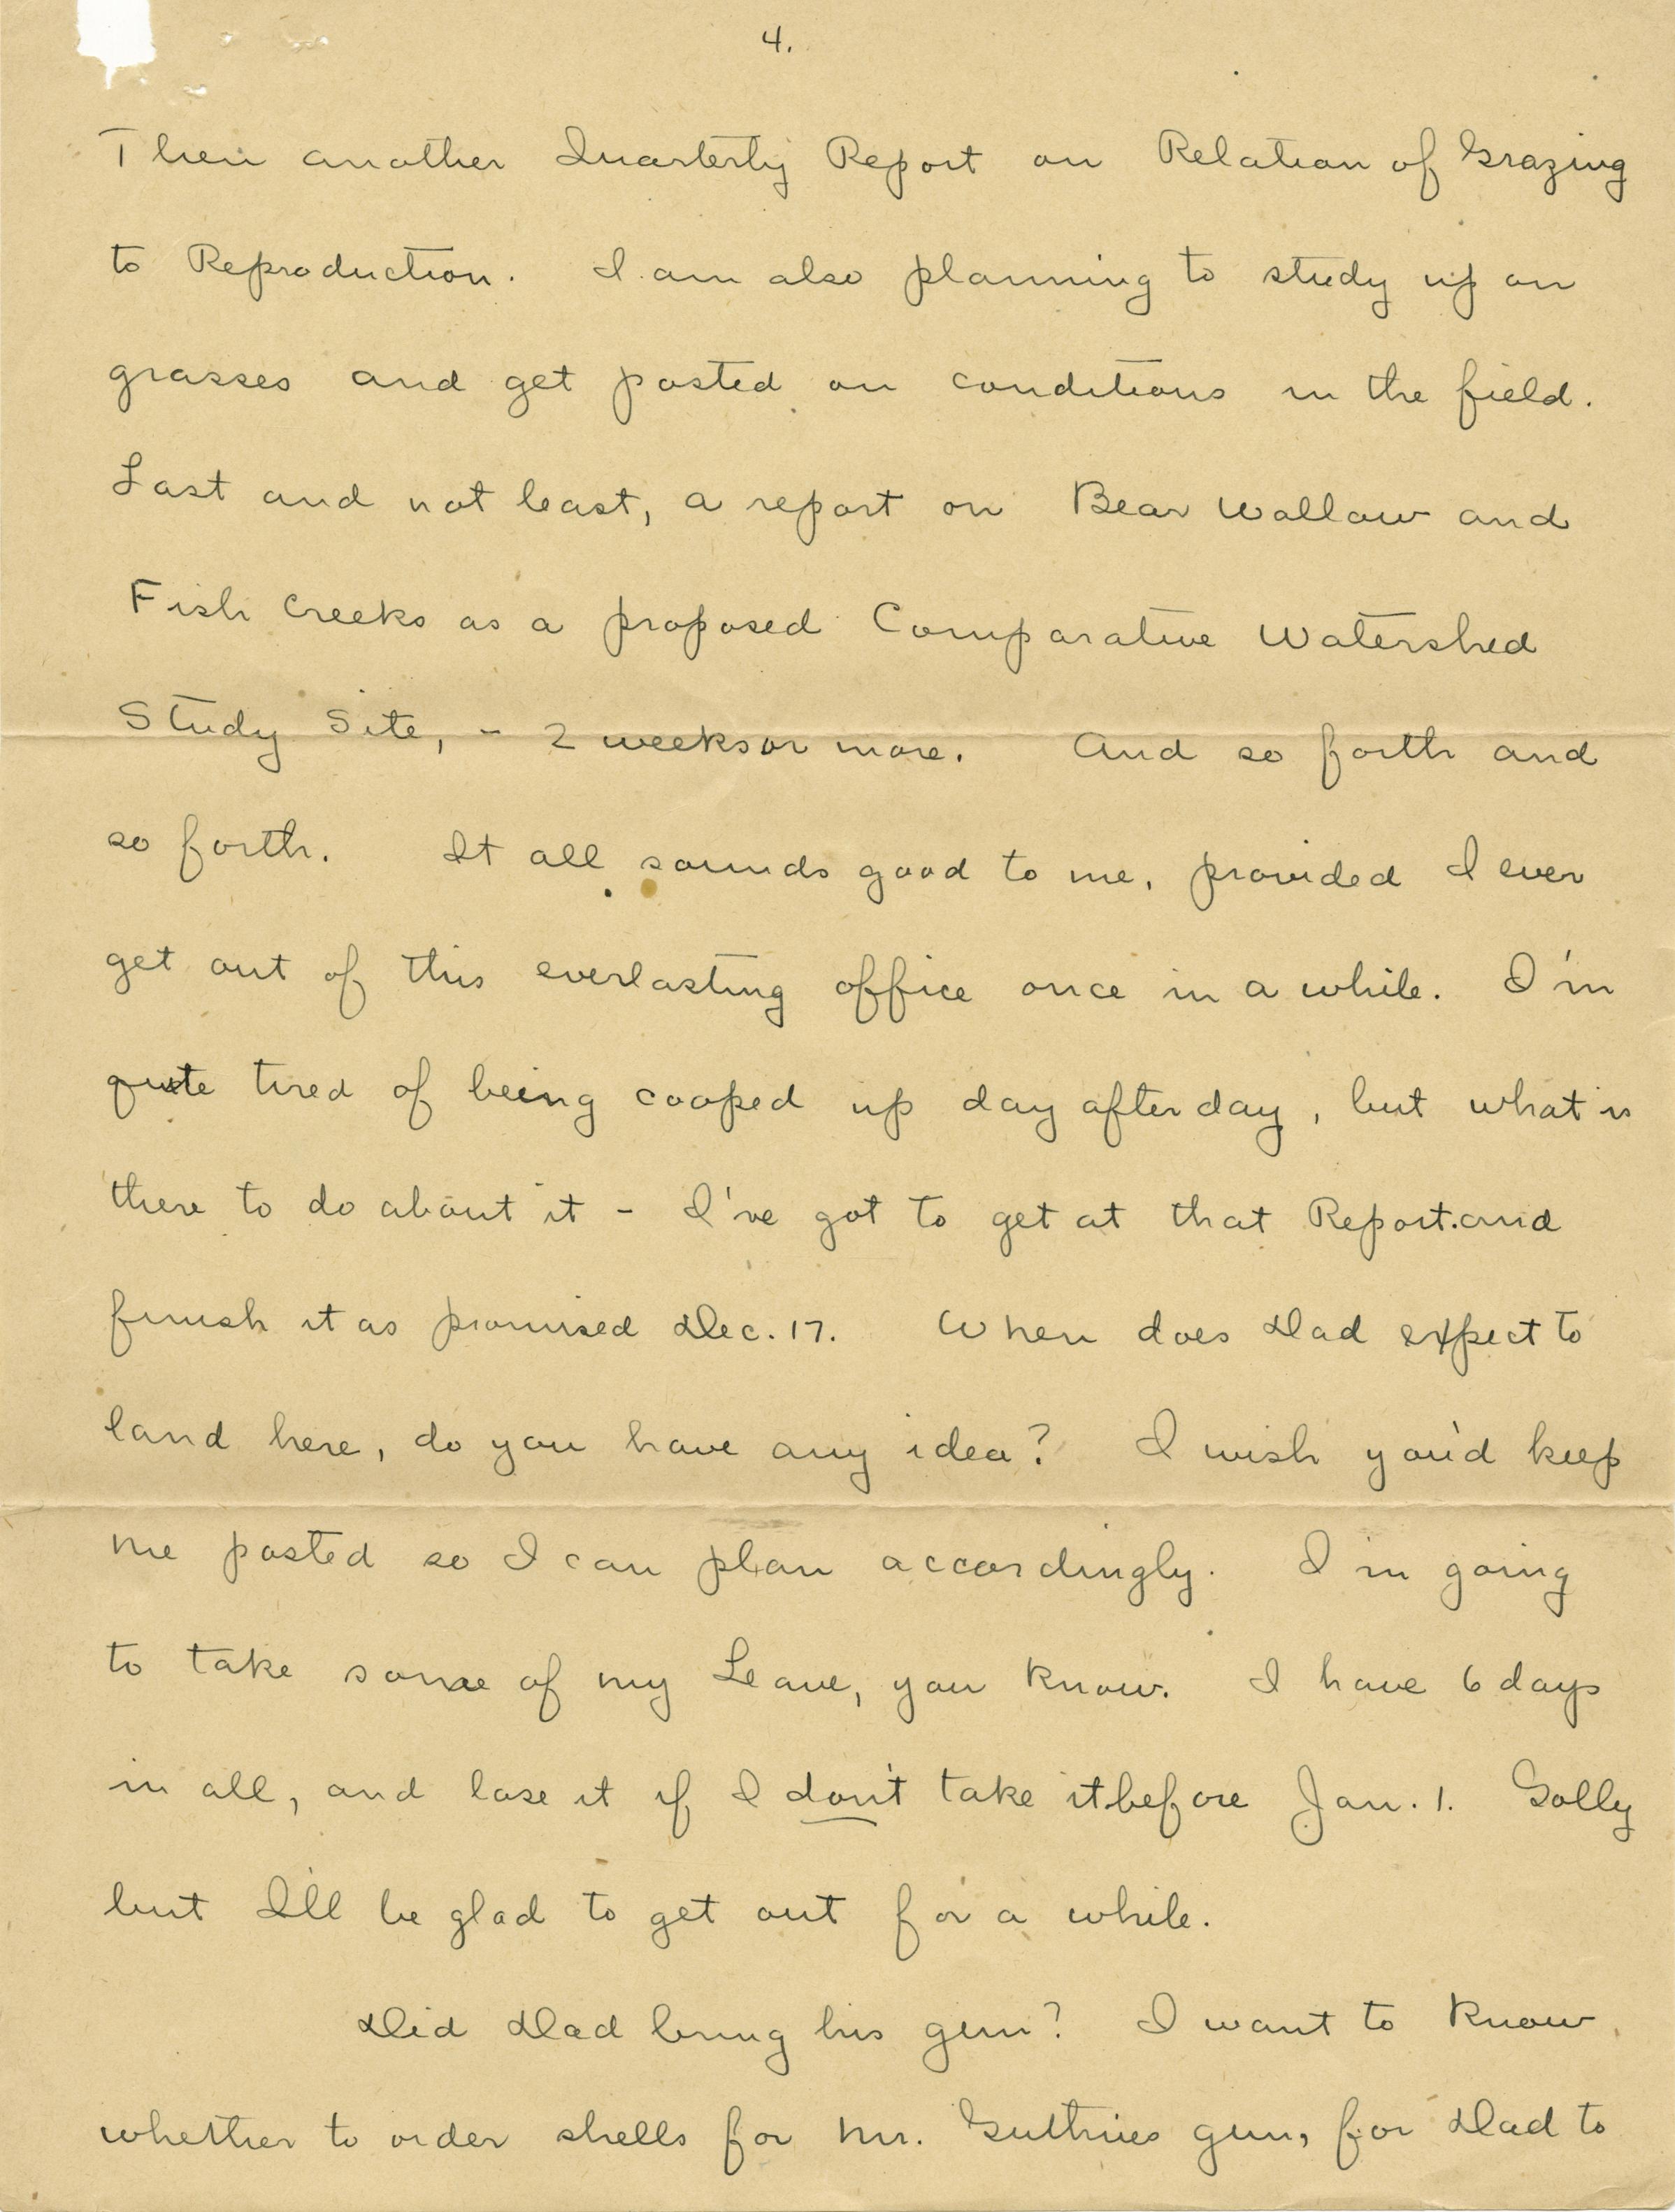 4.
Then another Quarterly Report on Relation of Grazing
to Reproduction. I am also planning to study up on
grasses and get posted on conditions in the field.
Last and not least, a report on Bear Wallow and
Fish Creeks as a proposed Comparative Watershed
Study Site, - 2 weeks or more. And so forth and
so forth. It all sounds good to me, provided I ever
get out of this everlasting office once in a while. I'm
quite tired of being cooped up day after day, but what is
there to do about it - I've got to get at that Report and
finish it as promised Dec. 17. When does Dad expect to
land here, do you have any idea? I wish you'd keep
me posted so I can plan accordingly. I'm going
to take some of my Leave, you know. I have 6 days
in all, and lose it if I don't take it before Jan. 1. Golly
but I'll be glad to get out for a while.
Did Dad bring his gun? I want to know
whether to order shells for Mr. Guthries gun, for Dad to